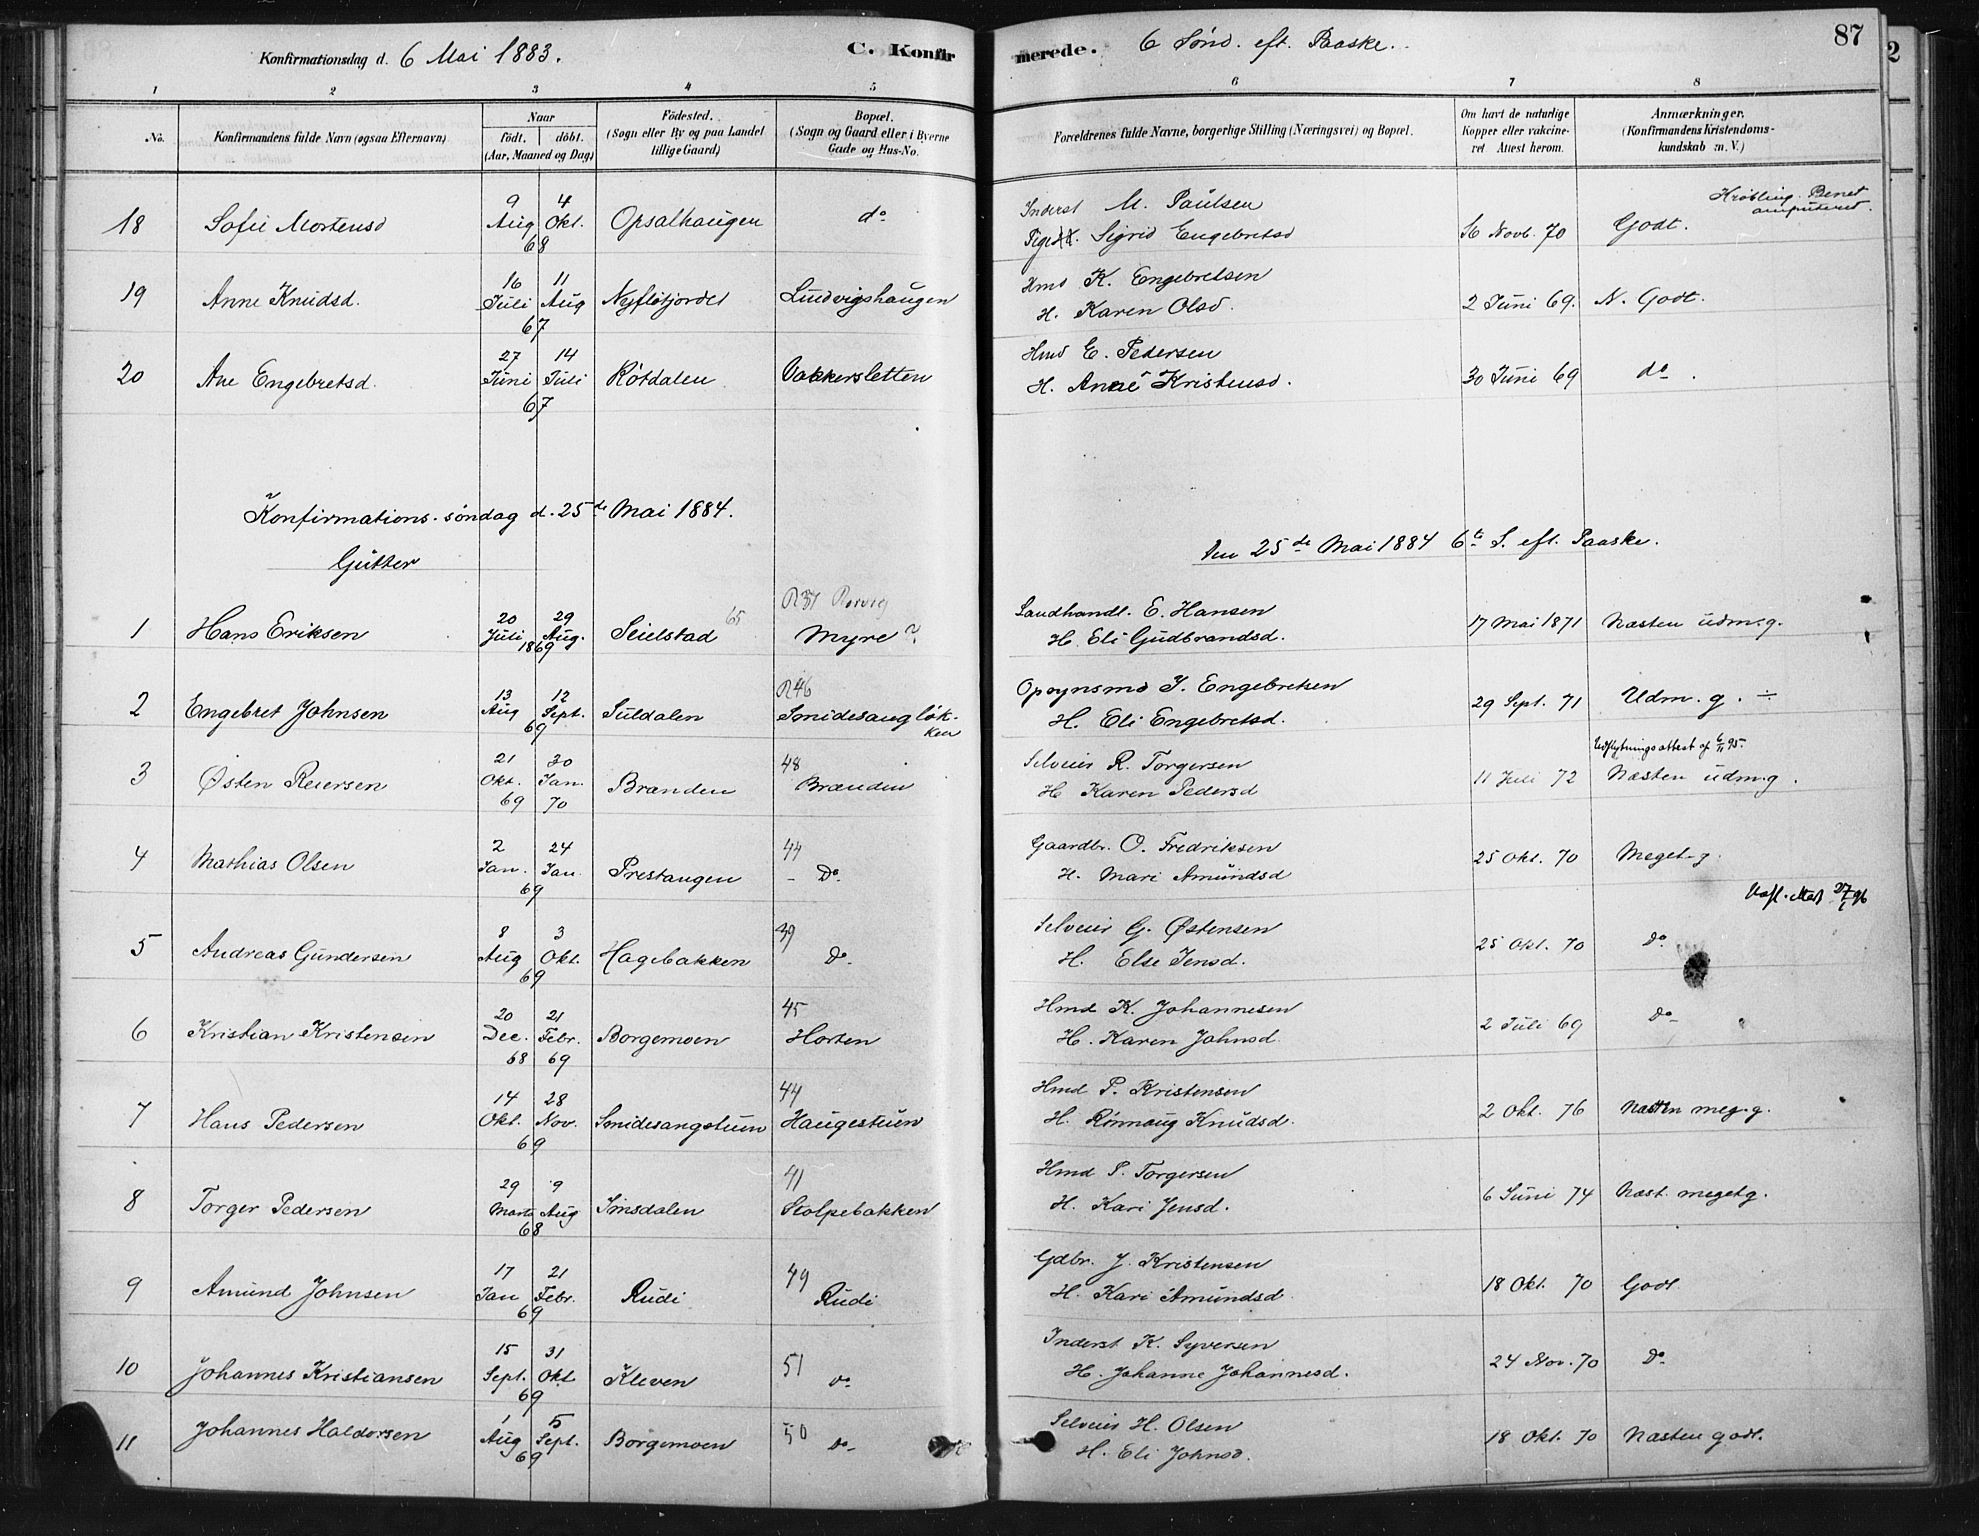 87
2
Konfirmationsdag d. 6 Mai 1883. C. Konfirmerede. 6 Sønd. eft. Paaske.
1 2 3 4 5 6 7 8
No. Konfirmandens fulde Navn (ogsaa Efternavn) Naar födt. döbt. (Aar, Maaned og Dag) Födested. (Sogn eller By og paa Landet tillige Gaard) Bopæl. (Sogn og Gaard eller i Byerne Gade og Hus-No. Forældrenes fulde Navne, borgerlige Stilling (Næringsvei) og Bopæl. Om havt de naturlige Kopper eller vakcineret Attest herom. Anmærkninger. (Konfirmandens Kristendomskundskab m. V.)
18 Sofie Mortensd 9 Aug 4 Okt. 68 Opsalhaugen do Inderst M. Paulsen Sigrid Engebretsd 16 Novb. 70 Godt. Krøbling. Benet amputeret.
19 Anne Knudsd. 16 Juli 11 Aug 67 Nyfløtjordet Ludvigshaugen Hmd K. Engebretsen H. Karen Olsd. 2 Juni 69. N. Godt.
20 Ane Engebretsd. 27 Juni 14 Juli 67 Røtdalen Vakkersletten Hmd E. Pedersen H. Anne Kristensd. 30 Juni 69 do.
Konfirmations-søndag d. 25de Mai 1884.
Den 25de Mai 1884 6te S. eft. Paaske.
Gutter
1 Hans Eriksen 20 Juli 29 Aug. 1869 Seielstad 65 R37 Myre? Landhandl. E. Hansen H. Eli Gudbrandsd. 17 Mai 1871 Næsten udm.g.
2 Engebret Johnsen 13 Aug 12 Sept. 69 Suldalen R46 Smidesangløkken Opsynsmd J. Engebretsen H. Eli Engebretsd. 29 Sept. 71 Udm. g. ÷
3 Østen Reiersen 21 Okt. 69 20 Jan. 70 Brænden 48 Brænden Selveier R. Torgersen H. Karen Pedersd 11 Juli 72 Udflytningsattest af 6/11 95. Næsten udm.g.
4 Mathias Olsen 2 Jan. 24 Jan. 69 Prestangen 44 - Do. Gaardbr. O. Fredriksen H. Mari Amundsd 25 Okt. 70 Meget g.
5 Andreas Gundersen 8 Aug 3 Okt. 69 Hagebakken 39 Do. Selveier G. Østensen H. Else Jensd. 25 Okt. 70 Do.
6 Kristian Kristensen 20 Dec. 68 21 Febr. 69 Borgemoen 45 Horten Hmd K. Johannesen H. Karen Johnsd. 2 Juli 69 Do
7 Hans Pedersen 14 Okt. 28 Nov. 69 Smidesangstuen 44 Haugestuen Hmd P. Kristensen H. Rønnaug Knudsd. 2 Okt. 76 Næsten meg. g.
8 Torger Pedersen 29 Marts 9 Aug 68 Imsdalen 41 Stolpebakken Hmd P. Torgersen H. Kari Jensd. 6 Juni 74 Næst. meget g.
9 Amund Johnsen 17 Jan 21 Febr. 69 Rudi 49 Rudi Gdbr. J. Kristensen H. Kari Amundsd. 18 Okt. 70 Godt
10 Johannes Kristiansen 15 Sept. 31 Okt 69 Kleven 51 do Inderst K. Syversen H. Johanne Johannesd. 24 Nov. 70 Do
11 Johannes Haldorsen 1 Aug 5 Sept. 69 Borgemoen 50 do Selveier H. Olsen H. Eli Johnsd. 18 Okt. 70 Næsten godt.